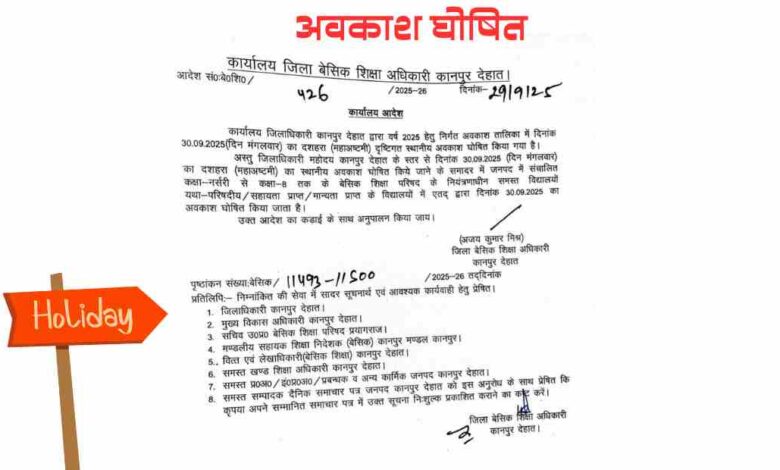 अवकाश घोषित
कार्यालय जिला बेसिक शिक्षा अधिकारी कानपुर देहात।
आदेश सं०:बे०शि०/ 426 /2025-26 दिनांक- 29/9/25
कार्यालय आदेश
कार्यालय जिलाधिकारी कानपुर देहात द्वारा वर्ष 2025 हेतु निर्गत अवकाश तालिका में दिनांक
30.09.2025(दिन मंगलवार) का दशहरा (महाअष्टमी) दृष्टिगत स्थानीय अवकाश घोषित किया गया है।
अस्तु जिलाधिकारी महोदय कानपुर देहात के स्तर से दिनांक 30.09.2025 (दिन मंगलवार)
का दशहरा (महाअष्टमी) का स्थानीय अवकाश घोषित किये जाने के समादर में जनपद में संचालित
कक्षा-नर्सरी से कक्षा-8 तक के बेसिक शिक्षा परिषद के नियंत्रणाधीन समस्त विद्यालयों
यथा-परिषदीय/सहायता प्राप्त/मान्यता प्राप्त के विद्यालयों में एतद् द्वारा दिनांक 30.09.2025 का
अवकाश घोषित किया जाता है।
उक्त आदेश का कड़ाई के साथ अनुपालन किया जाय।
(अजय कुमार मिश्र)
जिला बेसिक शिक्षा अधिकारी
कानपुर देहात
पृष्ठांकन संख्या:बेसिक/ 11493-11500 /2025-26 तद्दिनांक
प्रतिलिपि:- निम्नांकित की सेवा में सादर सूचनार्थ एवं आवश्यक कार्यवाही हेतु प्रेषित।
1. जिलाधिकारी कानपुर देहात।
2. मुख्य विकास अधिकारी कानपुर देहात।
3. सचिव उ०प्र० बेसिक शिक्षा परिषद प्रयागराज।
4. मण्डलीय सहायक शिक्षा निदेशक (बेसिक) कानपुर मण्डल कानपुर।
5. वित्त एवं लेखाधिकारी(बेसिक शिक्षा) कानपुर देहात।
6. समस्त खण्ड शिक्षा अधिकारी कानपुर देहात।
7. समस्त प्र०अ०/इं०प्र०अ०/प्रबन्धक व अन्य कार्मिक जनपद कानपुर देहात।
8. समस्त सम्पादक दैनिक समाचार पत्र जनपद कानपुर देहात को इस अनुरोध के साथ प्रेषित कि
कृपया अपने सम्मानित समाचार पत्र में उक्त सूचना निःशुल्क प्रकाशित कराने का कष्ट करें।
जिला बेसिक शिक्षा अधिकारी
कानपुर देहात।
Holiday